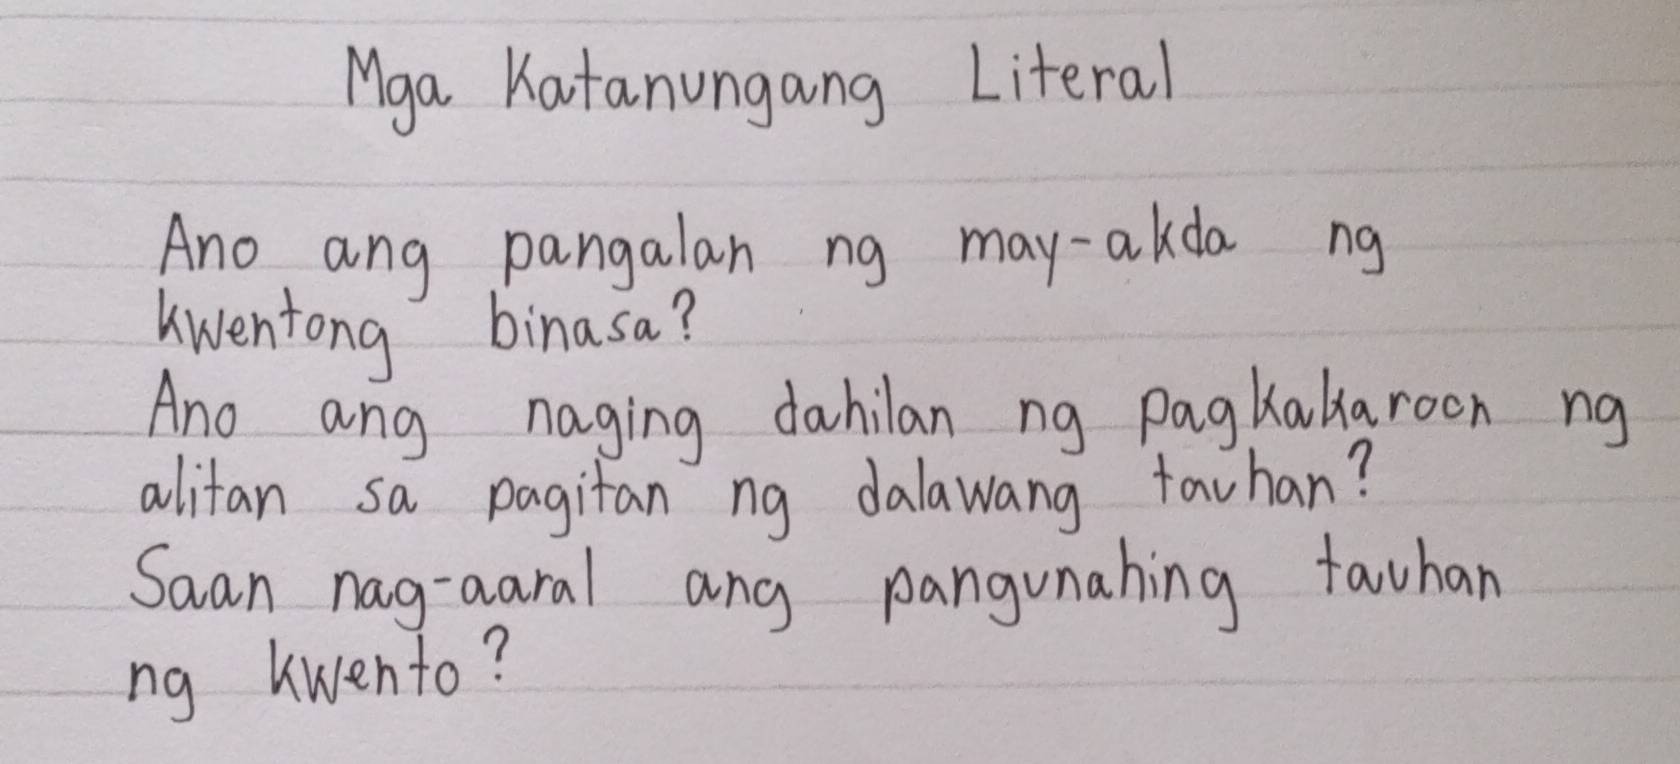 Mga Katanungang Literal
Ano ang pangalan ng may-akda ng
kwentong binasa?
Ano ang naging dahilan ng pagkakaroon ng
alitan sa pagitan ng dalawang tauhan?
Saan nag-aaral ang pangunahing tauhan
ng kwento?